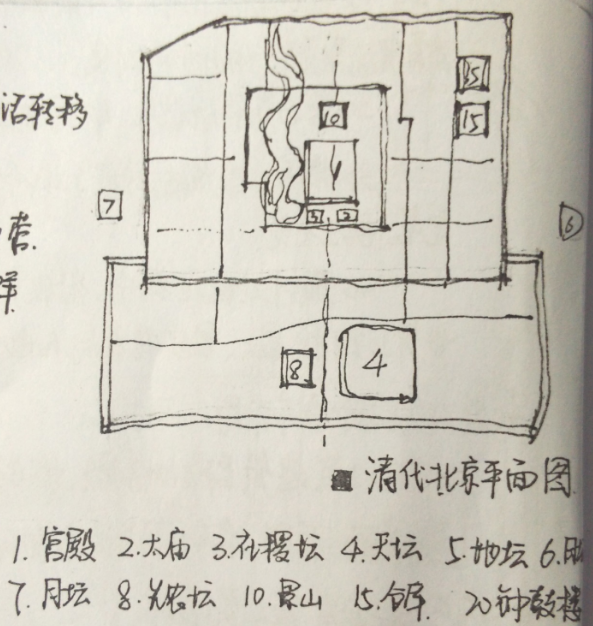 活转移
15
10
15
1
7
营
3 2
6
样
8
4
清代北京平面图
1. 宫殿 2. 太庙 3. 社稷坛 4. 天坛 5. 地坛 6. 日
7. 月坛 8. 先农坛 10. 景山 15. 仓库 20 钟鼓楼